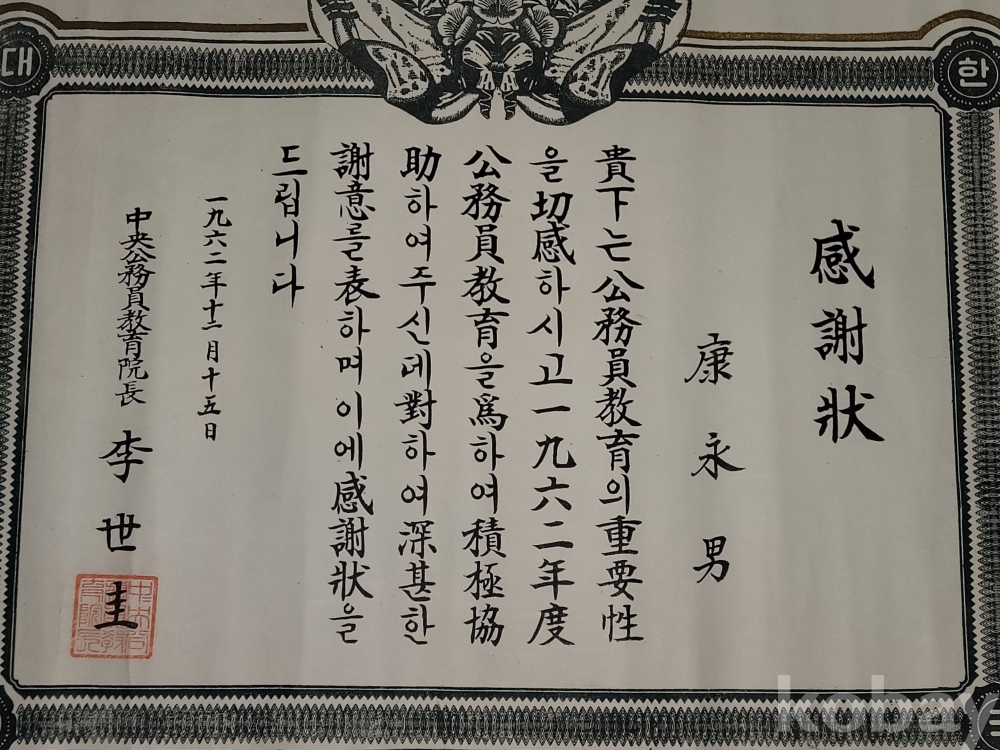 한
대
感謝狀
康永男
貴下는公務員教育의重要性
을切感하시고一九六二年度
公務員教育을爲하여積極協
助하여주신데對하여深甚한
謝意를表하며이에感謝狀을
드립니다
一九六二年十二月十五日
中央公務員教育院長 李世圭
kobay